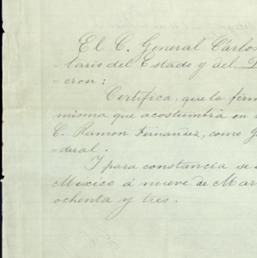 El C. General Cárlos
-tario del Estado y del D
-cron:
Certifica, que la firm
misma que acostumbra en
C. Ramon Fernandez, como G
-deral.
I para constancia se
Mexico á nueve de Mar
ochenta y tres.